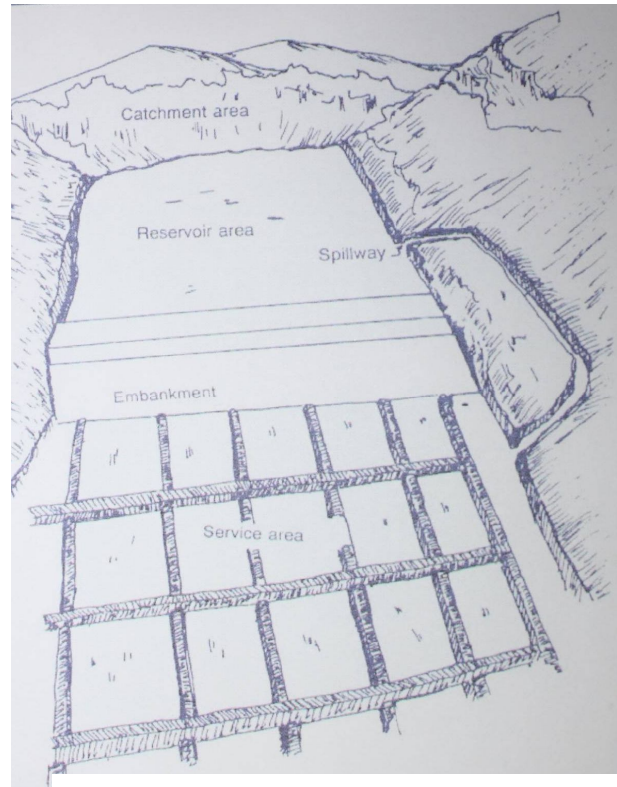 Catchment area
Reservoir area
Spillway
Embankment
Service area